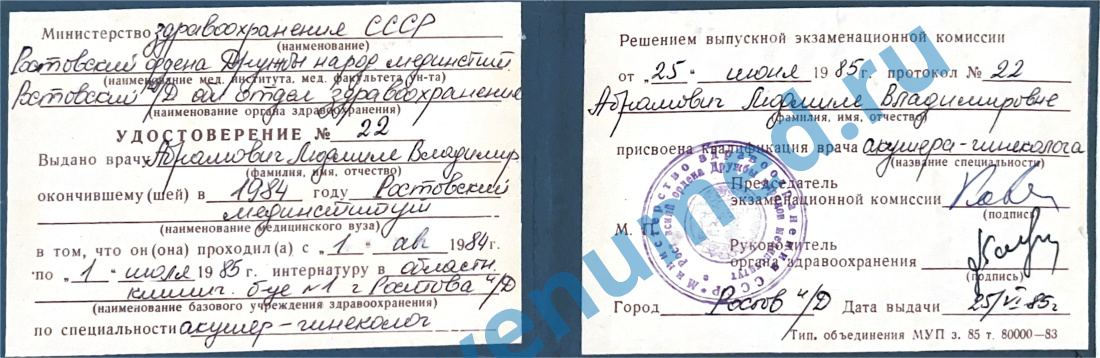 Министерство здравоохранения СССР
(наименование)
Ростовский ордена Дружбы народ мединстит.
(наименование мед. института, мед. факультета ун-та)
Ростовский н/Д обл отдел здравоохранение
(наименование органа здравоохранения)
УДОСТОВЕРЕНИЕ № 22
Выдано врачу Абрамович Людмиле Владимир
(фамилия, имя, отчество)
окончившему (шей) в 1984 году Ростовский
мединститут
(наименование медицинского вуза)
в том, что он (она) проходил(а) с „1“ авг 1984 г.
по „1“ июля 1985 г. интернатуру в областн.
клинич. б-це №1 г Ростова н/Д
(наименование базового учреждения здравоохранения)
по специальности акушер-гинеколог
Решением выпускной экзаменационной комиссии
от „25“ июня 1985 г. протокол № 22
Абрамович Людмиле Владимировне
(фамилия, имя, отчество)
присвоена квалификация врача акушера-гинеколога
(название специальности)
Председатель
экзаменационной комиссии
(подпись)
М. П.
Руководитель
органа здравоохранения
(подпись)
Город Ростов н/Д Дата выдачи 25/VI-85г
Тип. объединения МУП з. 85 т. 80000—83
Министерство здравоохранения СССР
Ростовский ордена Дружбы народов мединститут
venumed.ru